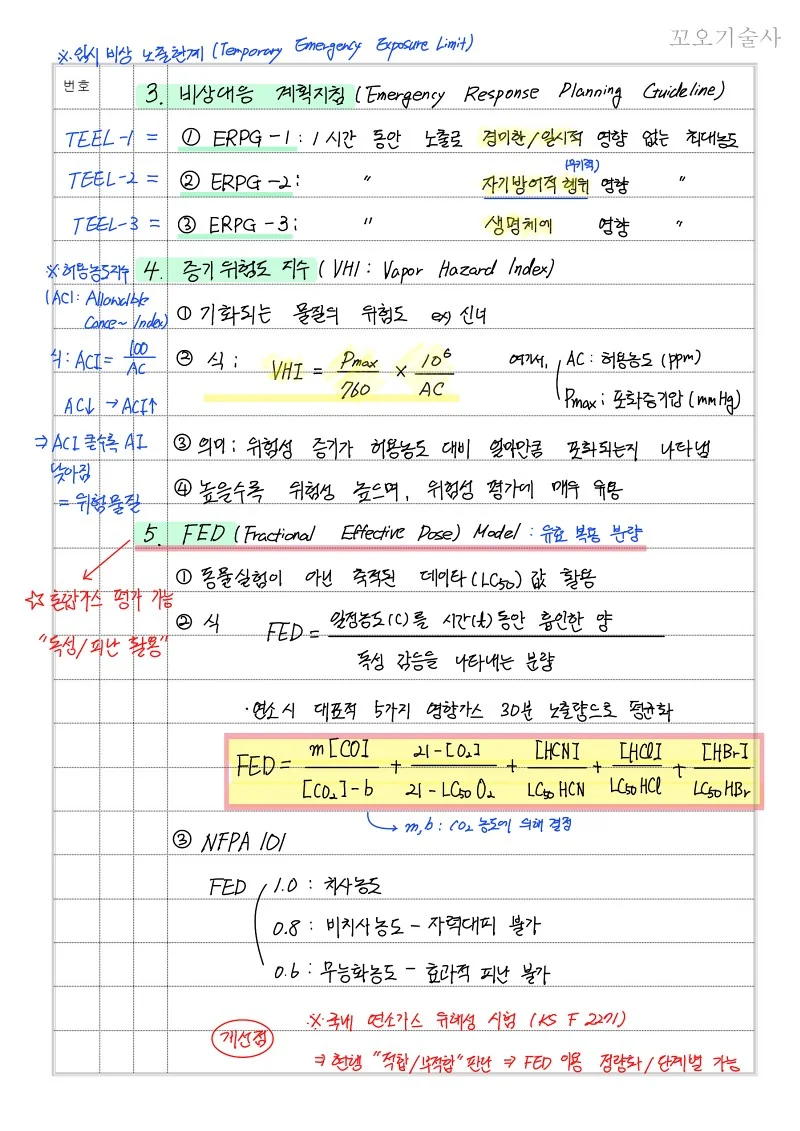 꼬오기술사
※임시 비상 노출한계 (Temporary Emergency Exposure Limit)
번호
3. 비상대응 계획지침 (Emergency Response Planning Guideline)
TEEL-1 = ① ERPG-1 : 1시간 동안 노출로 경미한/일시적 영향 없는 최대농도
(유기적)
TEEL-2 = ② ERPG-2: " 자기방어적 행위 영향 "
TEEL-3 = ③ ERPG-3: " 생명체에 영향 "
※허용농도지수
(ACI: Allowable
Conce~ Index)
식: ACI = 100/AC
AC↓ → ACI↑
⇒ ACI 클수록 AI
낮아짐
= 위험물질
4. 증기 위험도 지수 (VHI : Vapor Hazard Index)
① 기화되는 물질의 위험도 ex) 신너
② 식 ; VHI = Pmax/760 × 10⁶/AC 여기서, AC : 허용농도 (ppm)
Pmax ; 포화증기압 (mmHg)
③ 의미 ; 위험성 증기가 허용농도 대비 얼마만큼 포화되는지 나타냄
④ 높을수록 위험성 높으며, 위험성 평가에 매우 유용
5. FED (Fractional Effective Dose) Model : 유효 복용 분량
☆ 혼합가스 평가 가능
"독성/피난 활용"
① 동물실험이 아닌 축적된 데이타(LC50) 값 활용
② 식 FED = 일정농도(C)를 시간(t)동안 흡인한 양 / 독성 감응을 나타내는 분량
·연소시 대표적 5가지 영향가스 30분 노출량으로 평균화
FED = m[CO]/[CO2]-b + 21-[O2]/21-LC50 O2 + [HCN]/LC50 HCN + [HCl]/LC50 HCl + [HBr]/LC50 HBr
→ m, b : CO2 농도에 의해 결정
③ NFPA 101
FED 1.0 : 치사농도
0.8 : 비치사농도 - 자력대피 불가
0.6 : 무능화농도 - 효과적 피난 불가
개선점
※국내 연소가스 유해성 시험 (KS F 2271)
⇒ 현행 "적합/부적합" 판단 ⇒ FED 이용 정량화/단계별 가능